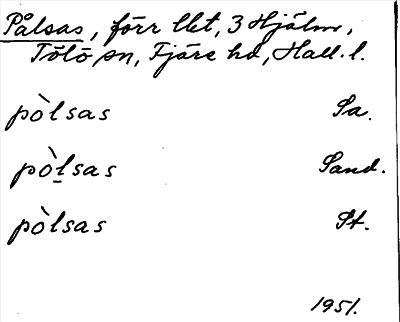 Pålsas, förr lht, 3 Hjälm,
Tölö sn, Fjäre hd, Hall. l.
pòlsas Sa.
pòl̠sas Sand.
pòlsas St.
1951.